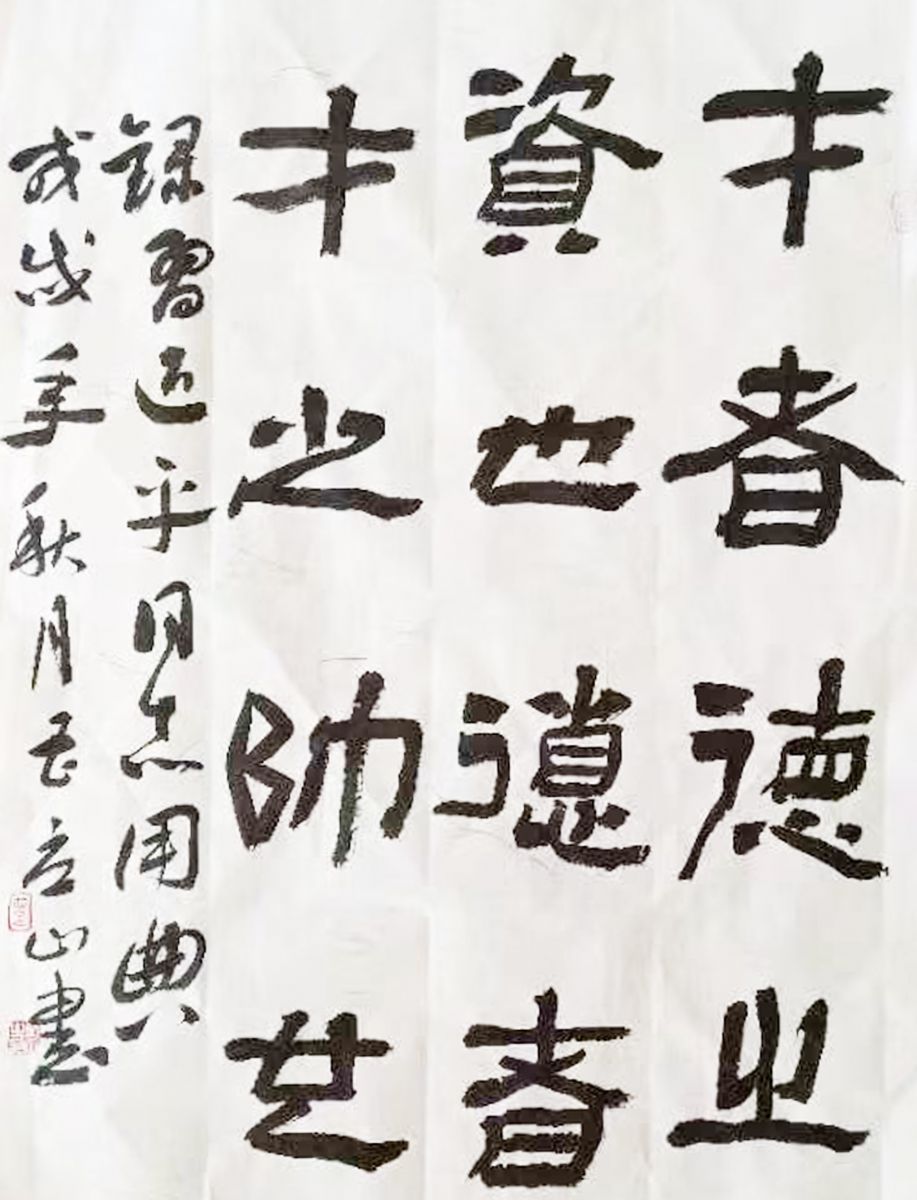 才者德之
資也德者
才之帥也
錄習近平同志用典
戊戌年秋月立山書